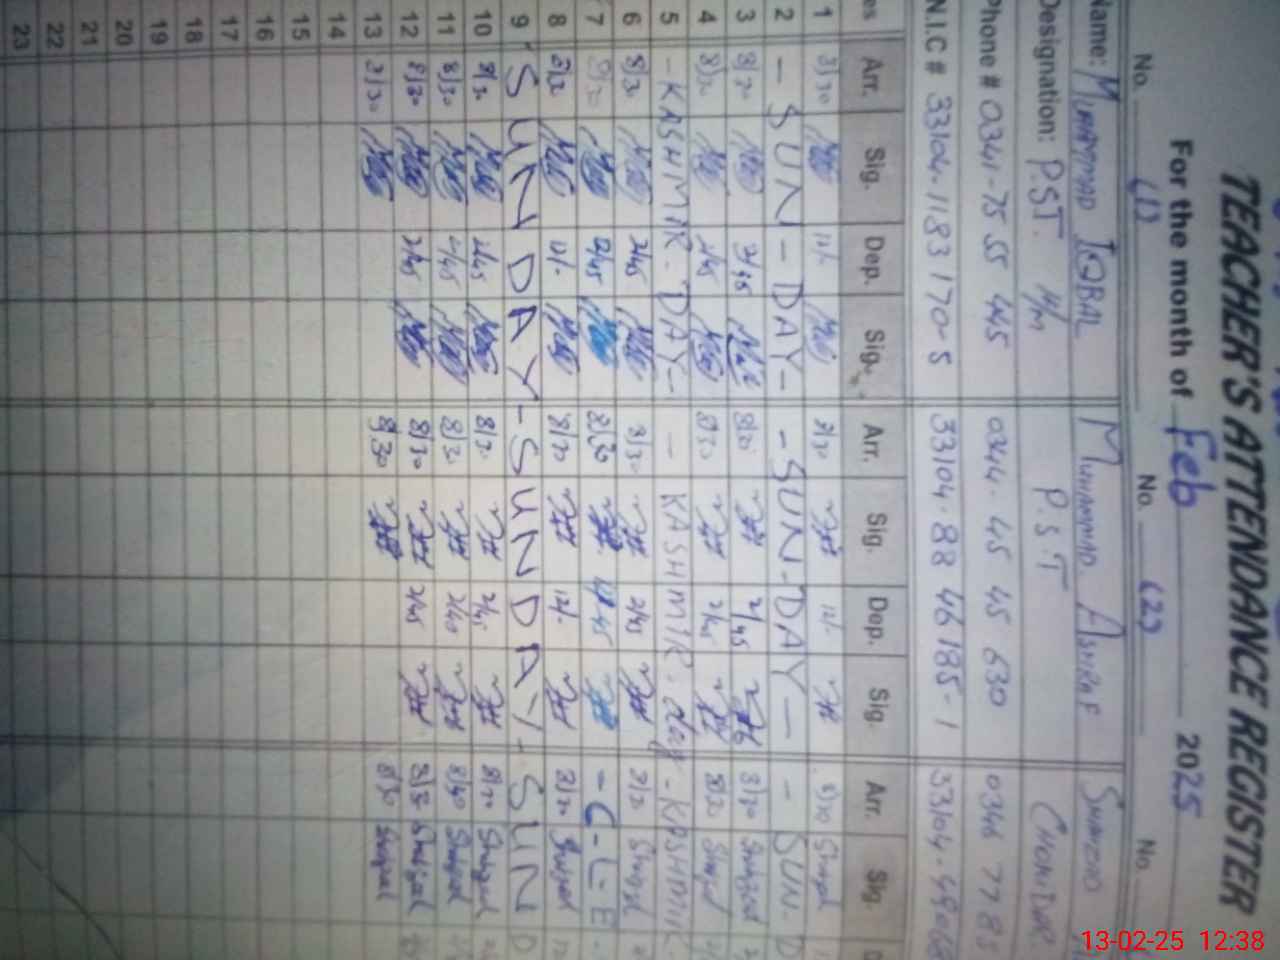 TEACHER'S ATTENDANCE REGISTER
For the month of Feb 2025
No. (1) No. (2) No.
Name: MUHAMMAD IQBAL MUHAMMAD ASHRAF SHAHZAD
Designation: P.S.T. H/M P.S.T CHOKIDAR
Phone # 0341-75 55 445 0344-45 45 630 0346 77 85
N.I.C # 33104-1183170-5 33104-88 46185-1 33104-
es Arr. Sig. Dep. Sig. Arr. Sig. Dep. Sig. Arr. Sig.
1 8/30 12/- 8/30 12/- 8/30 Shahzad
2 - SUN - DAY - - SUN - DAY - - SUN - D
3 8/30 2/45 8/30 2/45 8/30 Shahzad
4 8/30 2/45 8/30 2/45 8/30 Shahzad
5 - KASHMIR - DAY - - KASHMIR - day - KASHMIR
6 8/30 2/45 8/30 2/45 8/30 Shahzad
7 8/30 2/45 8/30 2/45 - C - L - E -
8 8/30 12/- 8/30 12/- 8/30 Shahzad
9 - S U N D A Y - S U N D A Y - S U N D
10 8/30 2/45 8/30 2/45 8/30 Shahzad
11 8/30 2/45 8/30 2/40 8/30 Shahzad
12 8/30 2/45 8/30 2/45 8/30 Shahzad
13 8/30 8/30 8/30 Shahzad
14
15
16
17
18
19
20
21
22
23
13-02-25 12:38